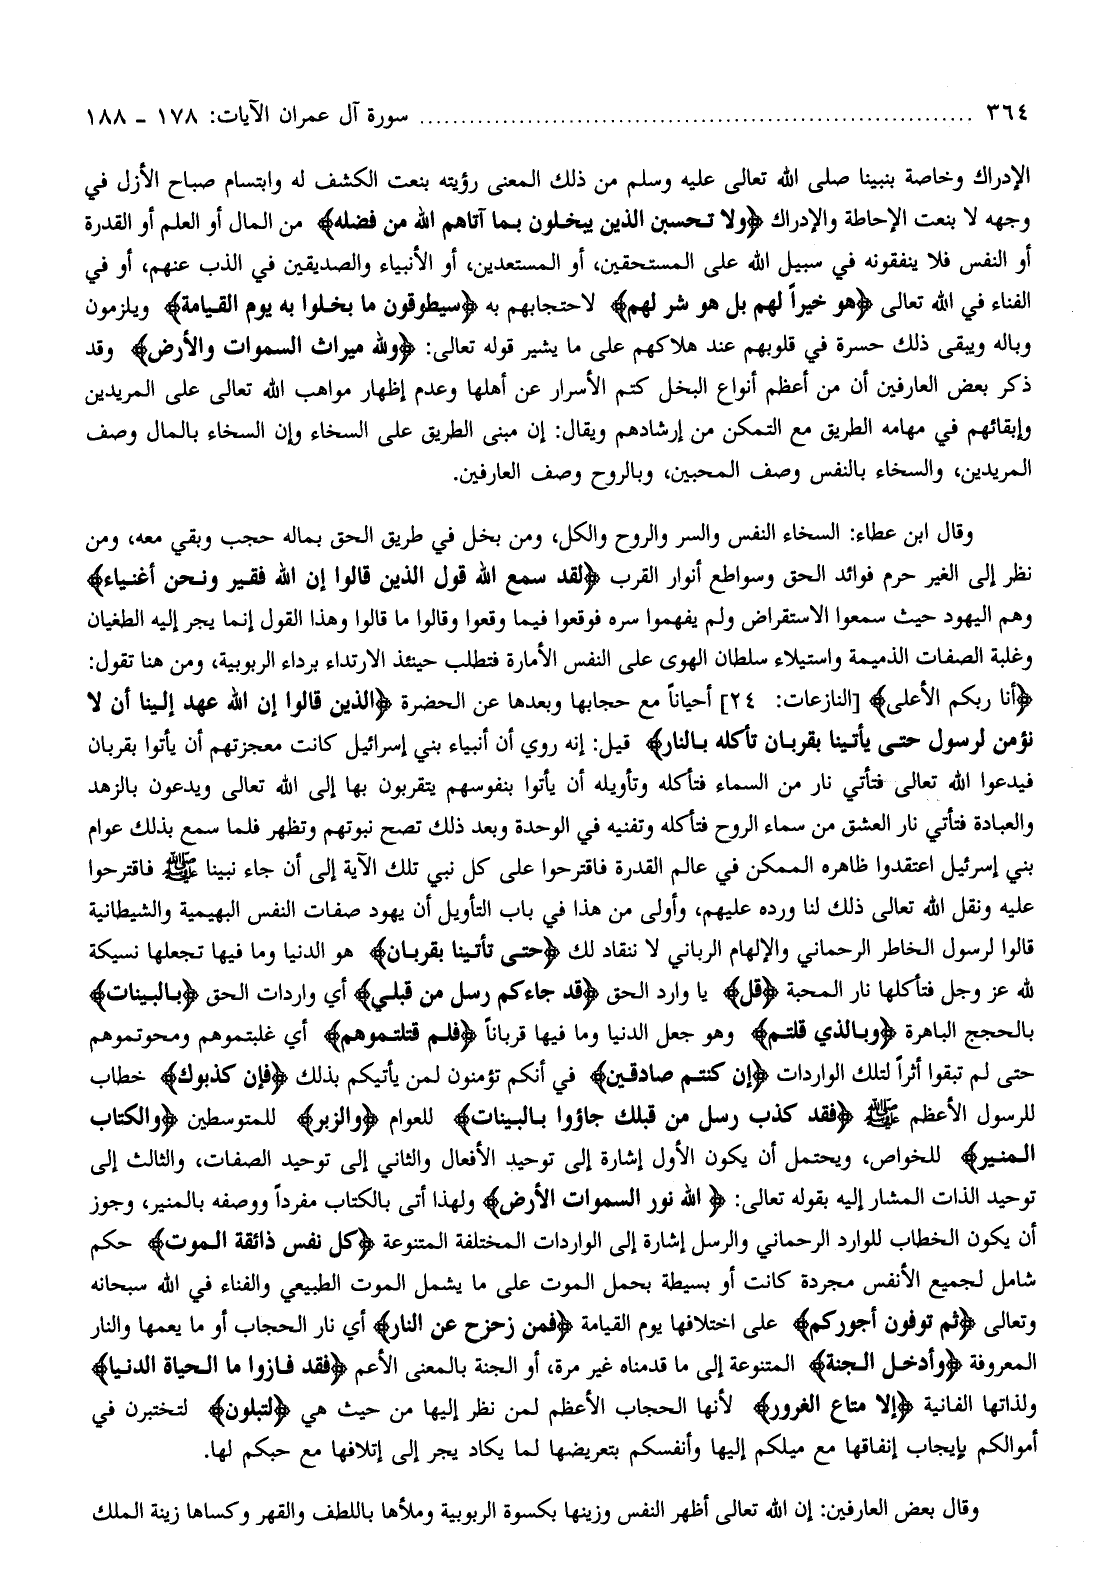 ٣٦٤ ........ سورة آل عمران الآيات: ١٧٨ - ١٨٨
الإدراك وخاصة بنبينا صلى الله تعالى عليه وسلم من ذلك المعنى رؤيته بنعت الكشف له وابتسام صباح الأزل في
وجهه لا بنعت الإحاطة والإدراك ﴿ولا تحسبن الذين يبخلون بما آتاهم الله من فضله﴾ من المال أو العلم أو القدرة
أو النفس فلا ينفقونه في سبيل الله على المستحقين، أو المستعدين، أو الأنبياء والصديقين في الذب عنهم، أو في
الفناء في الله تعالى ﴿هو خيراً لهم بل هو شر لهم﴾ لاحتجابهم به ﴿سيطوقون ما بخلوا به يوم القيامة﴾ ويلزمون
وباله ويبقى ذلك حسرة في قلوبهم عند هلاكهم على ما يشير قوله تعالى: ﴿ولله ميراث السموات والأرض﴾ وقد
ذكر بعض العارفين أن من أعظم أنواع البخل كتم الأسرار عن أهلها وعدم إظهار مواهب الله تعالى على المريدين
وإبقائهم في مهامه الطريق مع التمكن من إرشادهم ويقال: إن مبنى الطريق على السخاء وإن السخاء بالمال وصف
المريدين، والسخاء بالنفس وصف المحبين، وبالروح وصف العارفين.
وقال ابن عطاء: السخاء النفس والسر والروح والكل، ومن بخل في طريق الحق بماله حجب وبقي معه، ومن
نظر إلى الغير حرم فوائد الحق وسواطع أنوار القرب ﴿لقد سمع الله قول الذين قالوا إن الله فقير ونحن أغنياء﴾
وهم اليهود حيث سمعوا الاستقراض ولم يفهموا سره فوقعوا فيما وقعوا وقالوا ما قالوا وهذا القول إنما يجر إليه الطغيان
وغلبة الصفات الذميمة واستيلاء سلطان الهوى على النفس الأمارة فتطلب حينئذ الارتداء برداء الربوبية، ومن هنا تقول:
﴿أنا ربكم الأعلى﴾ [النازعات: ٢٤] أحياناً مع حجابها وبعدها عن الحضرة ﴿الذين قالوا إن الله عهد إلينا أن لا
نؤمن لرسول حتى يأتينا بقربان تأكله بالنار﴾ قيل: إنه روي أن أنبياء بني إسرائيل كانت معجزتهم أن يأتوا بقربان
فيدعوا الله تعالى فتأتي نار من السماء فتأكله وتأويله أن يأتوا بنفوسهم يتقربون بها إلى الله تعالى ويدعون بالزهد
والعبادة فتأتي نار العشق من سماء الروح فتأكله وتفنيه في الوحدة وبعد ذلك تصح نبوتهم وتظهر فلما سمع بذلك عوام
بني إسرئيل اعتقدوا ظاهره الممكن في عالم القدرة فاقترحوا على كل نبي تلك الآية إلى أن جاء نبينا ﷺ فاقترحوا
عليه ونقل الله تعالى ذلك لنا ورده عليهم، وأولى من هذا في باب التأويل أن يهود صفات النفس البهيمية والشيطانية
قالوا لرسول الخاطر الرحماني والإلهام الرباني لا ننقاد لك ﴿حتى تأتينا بقربان﴾ هو الدنيا وما فيها تجعلها نسيكة
لله عز وجل فتأكلها نار المحبة ﴿قل﴾ يا وارد الحق ﴿قد جاءكم رسل من قبلي﴾ أي واردات الحق ﴿بالبينات﴾
بالحجج الباهرة ﴿وبالذي قلتم﴾ وهو جعل الدنيا وما فيها قرباناً ﴿فلم قتلتموهم﴾ أي غلبتموهم ومحوتموهم
حتى لم تبقوا أثراً لتلك الواردات ﴿إن كنتم صادقين﴾ في أنكم تؤمنون لمن يأتيكم بذلك ﴿فإن كذبوك﴾ خطاب
للرسول الأعظم ﷺ ﴿فقد كذب رسل من قبلك جاؤوا بالبينات﴾ للعوام ﴿والزبر﴾ للمتوسطين ﴿والكتاب
المنير﴾ للخواص، ويحتمل أن يكون الأول إشارة إلى توحيد الأفعال والثاني إلى توحيد الصفات، والثالث إلى
توحيد الذات المشار إليه بقوله تعالى: ﴿الله نور السموات الأرض﴾ ولهذا أتى بالكتاب مفرداً ووصفه بالمنير، وجوز
أن يكون الخطاب للوارد الرحماني والرسل إشارة إلى الواردات المختلفة المتنوعة ﴿كل نفس ذائقة الموت﴾ حكم
شامل لجميع الأنفس مجردة كانت أو بسيطة بحمل الموت على ما يشمل الموت الطبيعي والفناء في الله سبحانه
وتعالى ﴿ثم توفون أجوركم﴾ على اختلافها يوم القيامة ﴿فمن زحزح عن النار﴾ أي نار الحجاب أو ما يعمها والنار
المعروفة ﴿وأدخل الجنة﴾ المتنوعة إلى ما قدمناه غير مرة، أو الجنة بالمعنى الأعم ﴿فقد فازوا ما الحياة الدنيا﴾
ولذاتها الفانية ﴿إلا متاع الغرور﴾ لأنها الحجاب الأعظم لمن نظر إليها من حيث هي ﴿لتبلون﴾ لتختبرن في
أموالكم بإيجاب إنفاقها مع ميلكم إليها وأنفسكم بتعريضها لما يكاد يجر إلى إتلافها مع حبكم لها.
وقال بعض العارفين: إن الله تعالى أظهر النفس وزينها بكسوة الربوبية وملأها باللطف والقهر وكساها زينة الملك